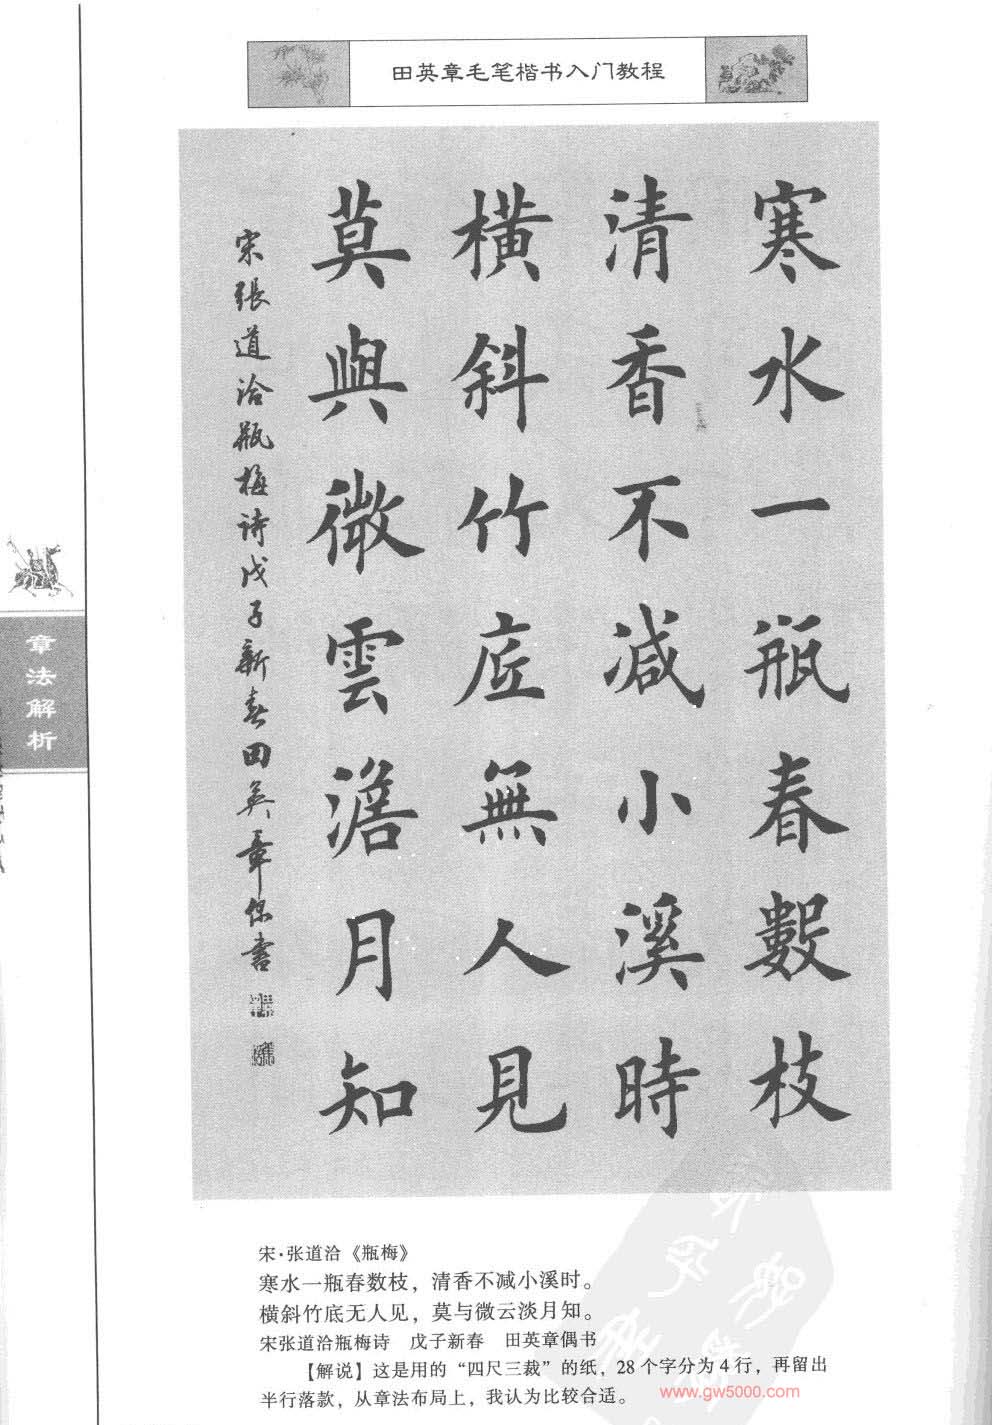 田英章毛笔楷书入门教程
寒水一瓶春數枝
清香不減小溪時
橫斜竹底無人見
莫與微雲澹月知
宋張道洽瓶梅詩戊子新春田英章偶書
章法解析
宋·张道洽《瓶梅》
寒水一瓶春数枝，清香不减小溪时。
横斜竹底无人见，莫与微云淡月知。
宋张道洽瓶梅诗　戊子新春　田英章偶书
【解说】这是用的“四尺三裁”的纸，28个字分为4行，再留出
半行落款，从章法布局上，我认为比较合适。
www.gw5000.com